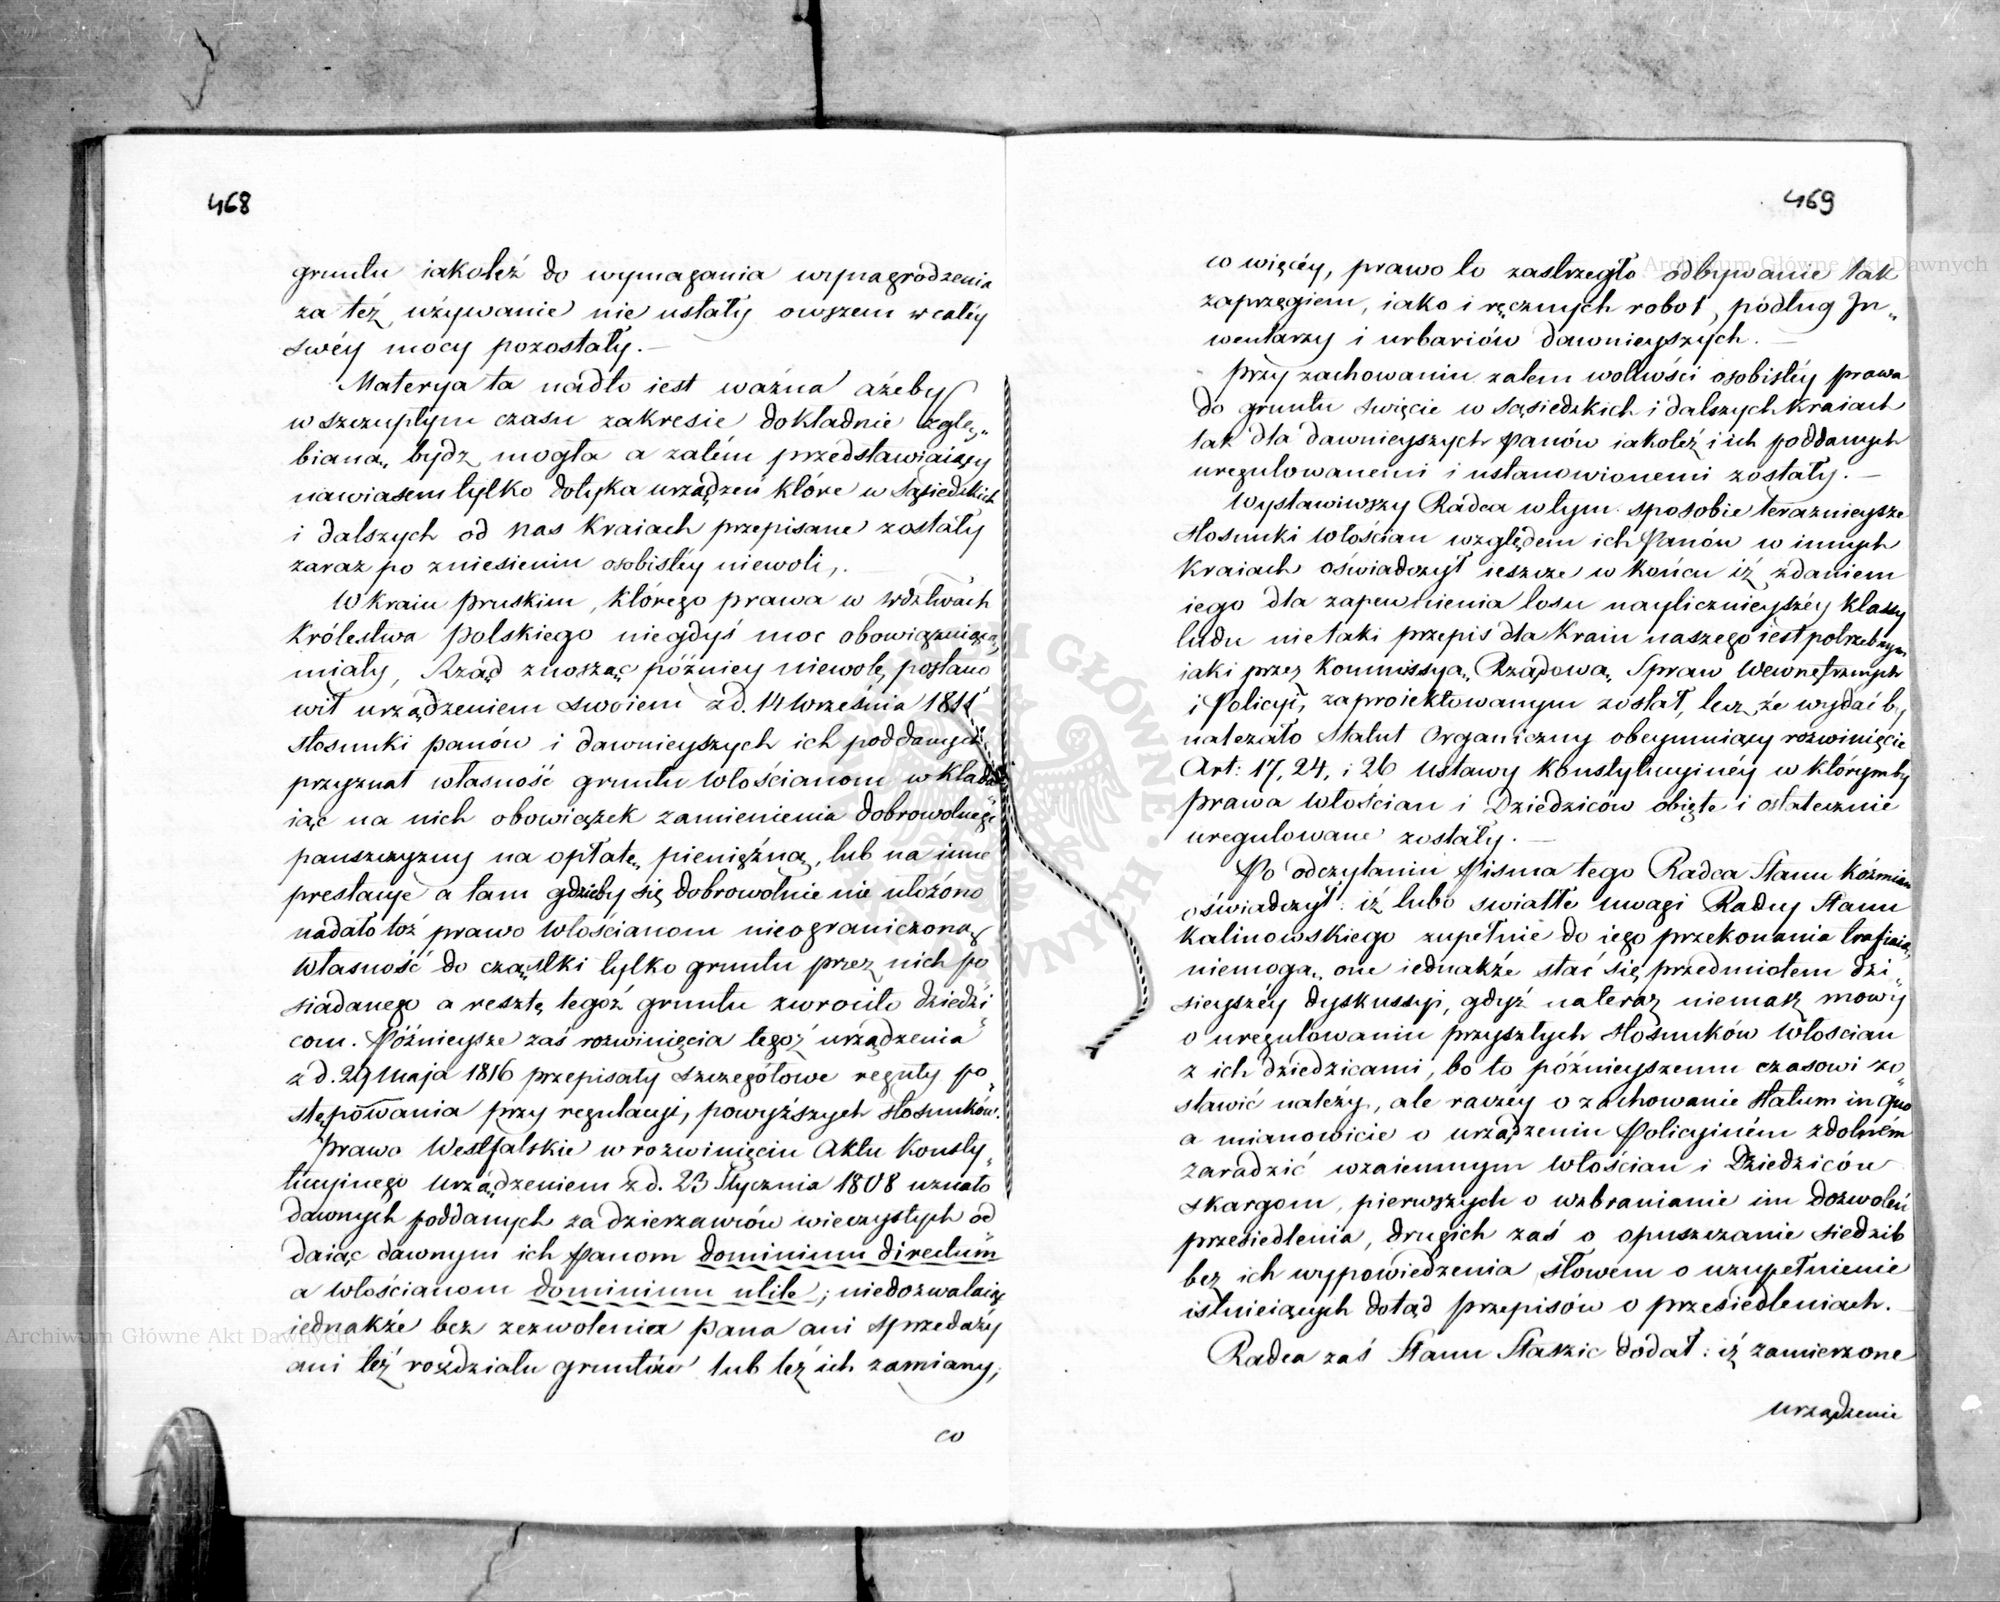 468
gruntu iakoteż do wymagania wynagrodzenia
za też używanie nie ustały owszem w całéy
swéy mocy pozostały. —
Materya ta nadto iest ważna ażeby
w szczupłym czasu zakresie dokładnie zgłę„
biana„ bydz mogła a zatém przedstawiaiący
nawiasem tylko dotyka urządzeń które w sąsiedzkich
i dalszych od nas kraiach przepisane zostały
zaraz po zniesieniu osobistéy niewoli,.
W kraiu pruskim, którego prawa w Wdztwach
Królestwa Polskiego niegdyś moc obowiązuiącą
miały, Rząd znosząc późniey niewolę, postano
wił urządzeniem swoiem z d. 14 Września 1811
stosunki panów i dawnieyszych ich poddanych
przyznał własność gruntu włościanom wkłada
iąc na nich obowiązek zamienienia dobrowolnego
pańszczyzny na opłatę, pieniężną, lub na inne
prestacye a tam gdzieby się dobrowolnie nie ułożono
nadało toż prawo włościanom nieograniczoną
własność do cząstki tylko gruntu przez nich po
siadanego a resztę tegoż gruntu zwróciło dziedzi
com. Późnieysze zaś rozwinięcia tegoż urządzenia
z d. 29 Maja 1816 przepisały szczegółowe reguły po„
stępowania przy regulacyi, powyższych stosunków.
Prawo Westfalskie w rozwinięciu Aktu Konsty„
tucyjnego urządzeniem z d. 23 Stycznia 1808 uznało
dawnych poddanych za dzierzawców wieczystych od
daiąc dawnym ich panom dominium directum
a włościanom dominium utile; niedozwalaiąc
iednakże bez zezwolenia pana ani sprzedaży
ani też rozdziału gruntów lub też ich zamiany;
co
469
co więcéy, prawo to zastrzegło odbywanie tak
zaprzęgiem, iako i ręcznych robot, podług In„
wentarzy i urbariów dawnieyszych. —
Przy zachowaniu zatem wolności osobistéy prawa
do gruntu święcie w sąsiedzkich i dalszych kraiach
tak dla dawnieyszych panów iakoteż i ich poddanych
uregulowanemi i ustanowionemi zostały. —
Wystawiwszy Radca w tym sposobie teraznieysze
stosunki włościan względem ich Panów w innych
kraiach oświadczył ieszcze w końcu iż zdaniem
iego dla zapewnienia losu naylicznieyszéy klassy
ludu nie taki przepis dla kraiu naszego iest potrzebnym
iaki przez Kommissyą, Rządową, Spraw Wewnętrznych
i Policyi, zaproiektowanym został, lecz, że wydać by
należało Statut Organiczny obeymuiący rozwinięcie
Art: 17, 24, i 26 Ustawy Konstytucyinéy w którymby
prawa włościan i Dziedziców obięte i ostatecznie
uregulowane zostały. —
Po odczytaniu Pisma tego Radca Stanu Koźmian
oświadczył: iż lubo swiatłe uwagi Radcy Stanu
Kalinowskiego zupełnie do iego przekonania trafiaią,
niemogą„ one iednakże stać się, przedmiotem dzi„
sieyszéy dyskussyi, gdyż na teraz niemasz mowy
o uregulowaniu przyszłych stosunków włościan
z ich dziedzicami, bo to późnieyszemu czasowi zo„
stawić należy, ale raczéy o zachowanie statum in quo
a mianowicie o urządzeniu Policyiném zdolném
zaradzić wzaiemnym włościan i Dziedziców
skargom, pierwszych o wzbranianie im dozwoleń
przesiedlenia, drugich zaś o opuszczanie siedzib
bez ich wypowiedzenia, słowem o uzupełnienie
istnieiących dotąd przepisów o przesiedleniach. —
Radca zaś Stanu Staszic dodał: iż zamierzone
urządzenie